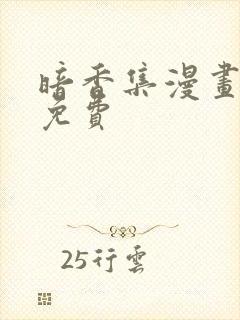 暗香集漫畫
免費
25行雲